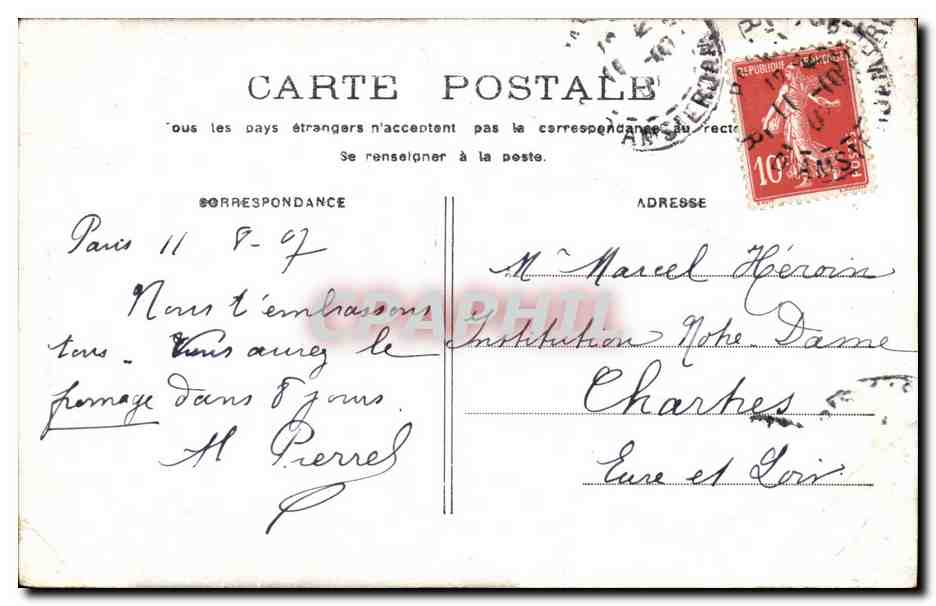 CARTE POSTALE
Tous les pays étrangers n'acceptent pas la correspondance au recto
Se renseigner à la poste.
CORRESPONDANCE
Paris 11 8-07
Nous t'embrassons
tous. Vous aurez le
fromage dans 8 jours.
M Pierrel
ADRESSE
Mr Marcel Héroin
Institution Notre-Dame
Chartres
Eure et Loir
REPUBLIQUE FRANÇAISE
10
POSTES
AMSTERDAM
CPAPHIL